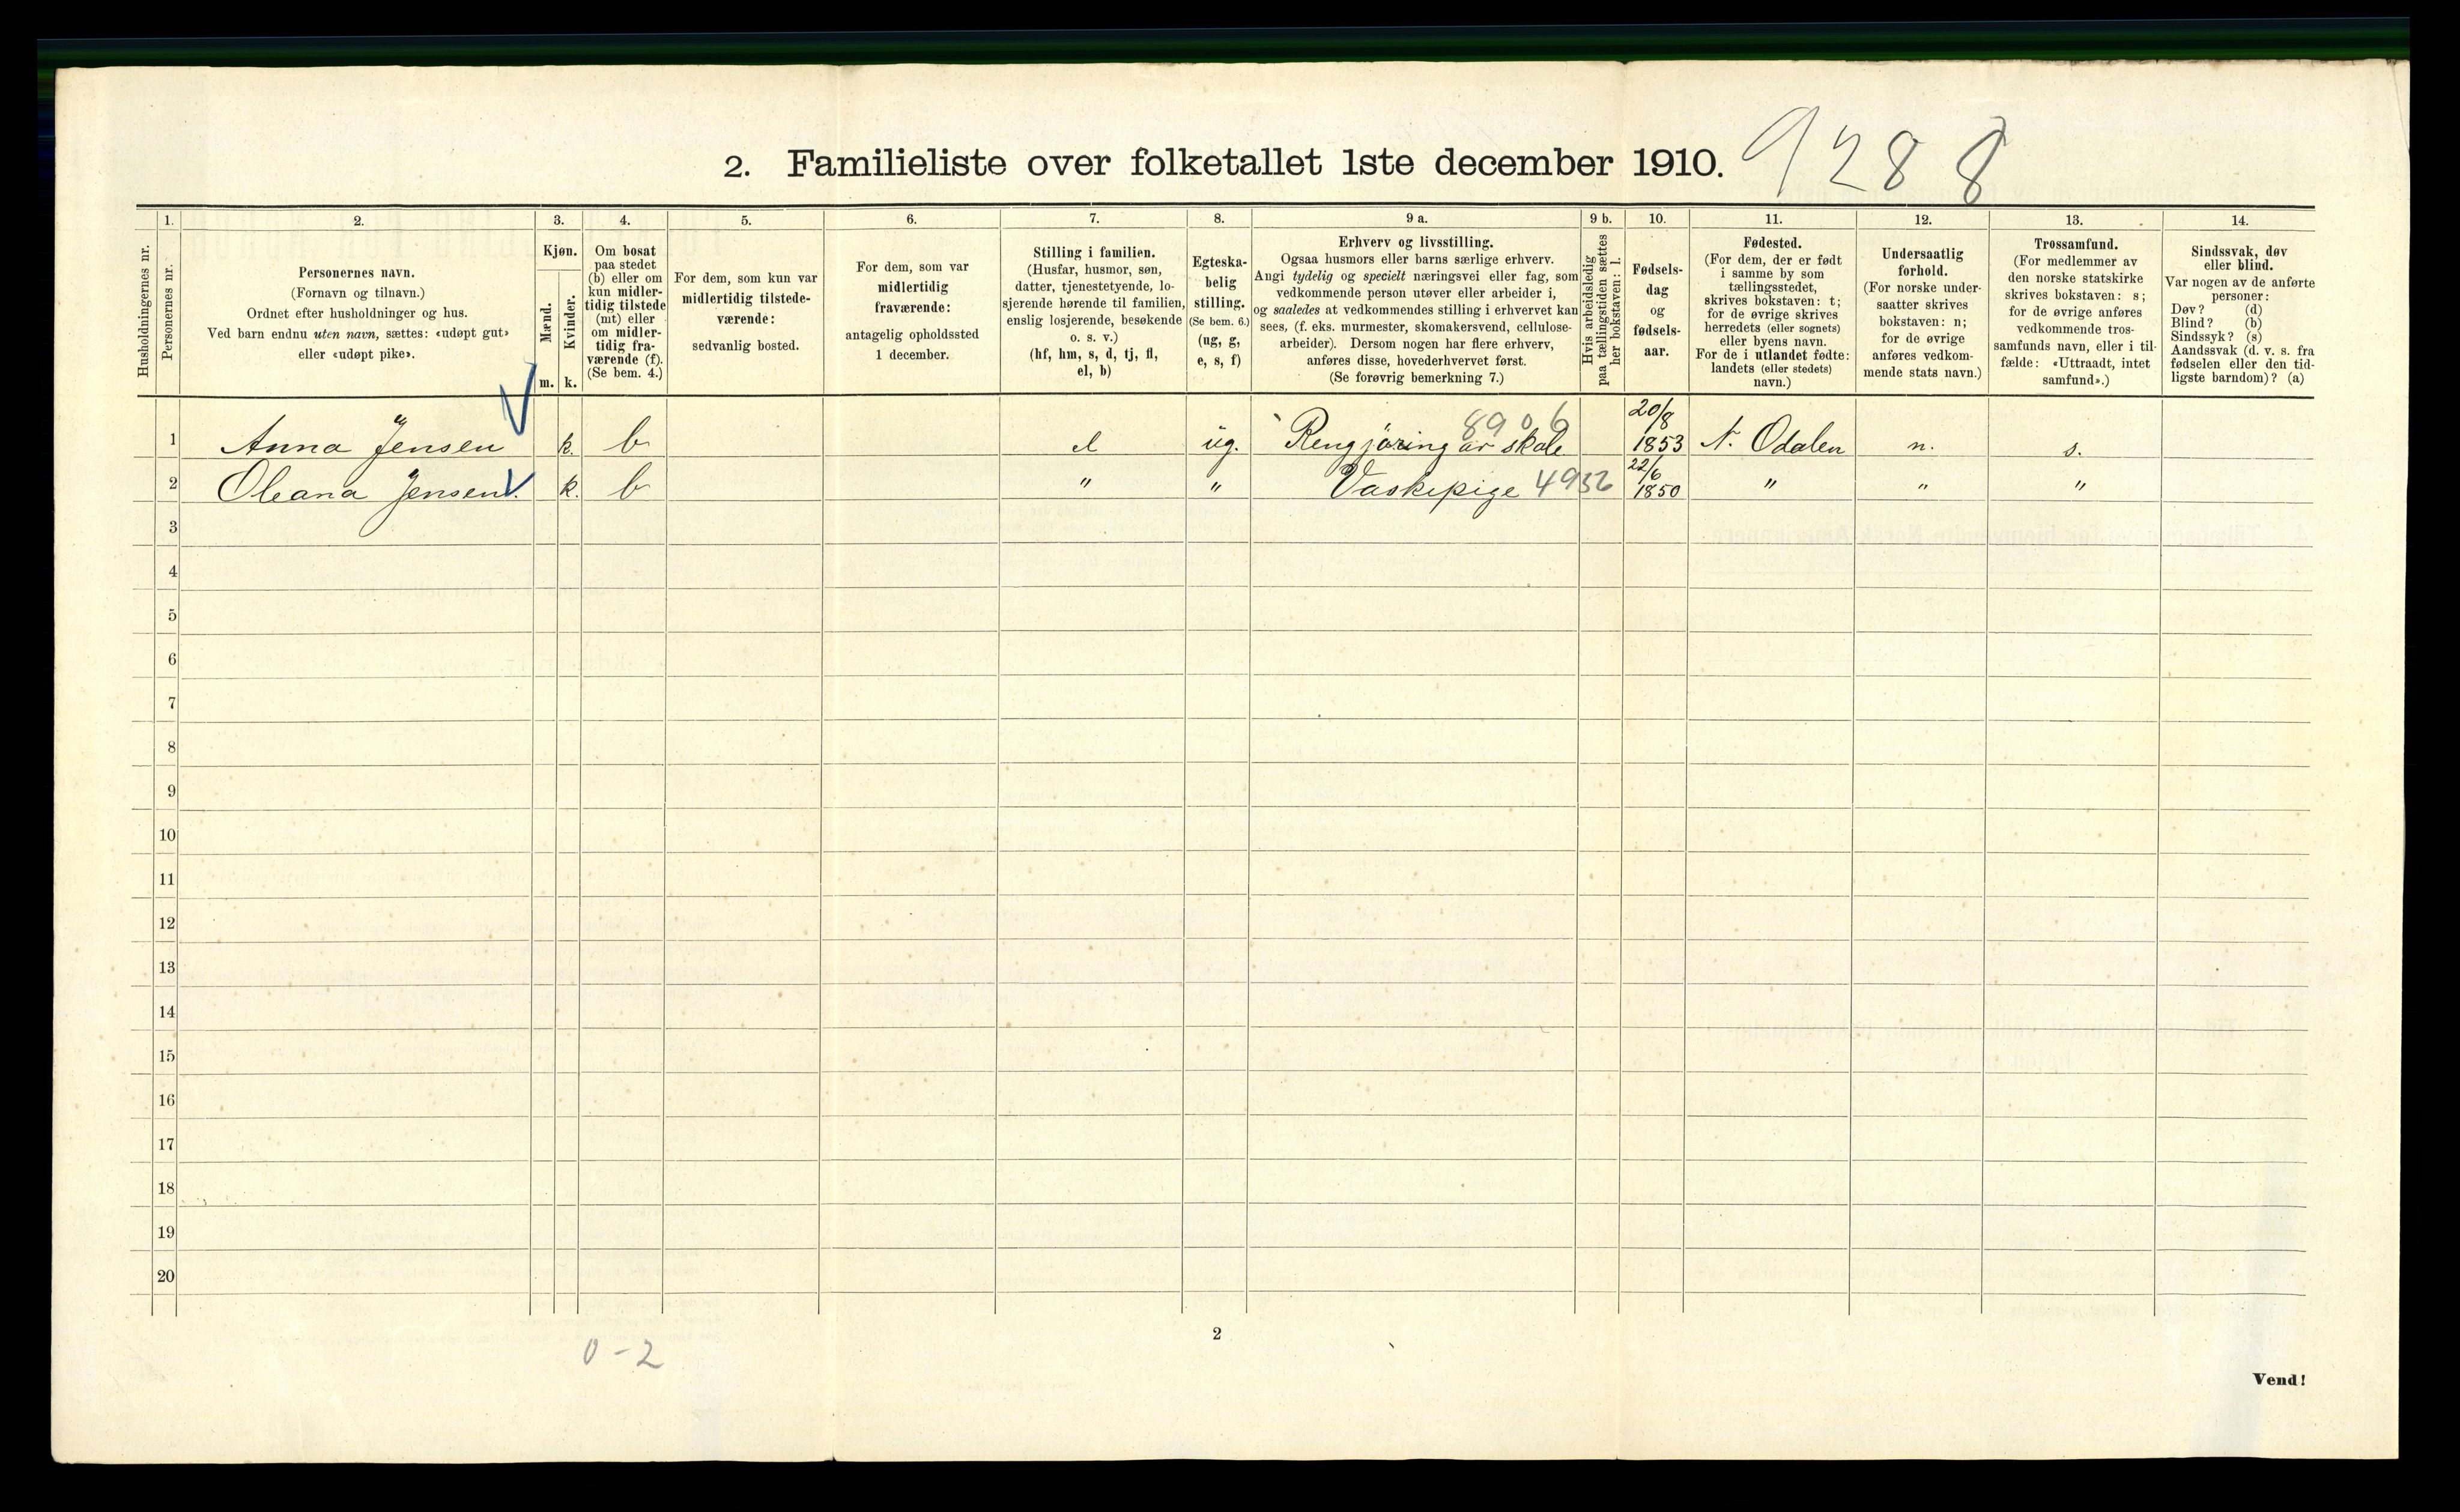 2. Familieliste over folketallet 1ste december 1910.
9288
Husholdningernes nr.
1.
Personernes nr.
2.
Personernes navn.
(Fornavn og tilnavn.)
Ordnet efter husholdninger og hus.
Ved barn endnu uten navn, sættes: «udøpt gut»
eller «udøpt pike».
3.
Kjøn.
Mænd.
Kvinder.
m. k.
4.
Om bosat
paa stedet
(b) eller om
kun midler-
tidig tilstede
(mt) eller
om midler-
tidig fra-
værende (f).
(Se bem. 4.)
5.
For dem, som kun var
midlertidig tilstede-
værende:
sedvanlig bosted.
6.
For dem, som var
midlertidig
fraværende:
antagelig opholdssted
1 december.
7.
Stilling i familien.
(Husfar, husmor, søn,
datter, tjenestetyende, lo-
sjerende hørende til familien,
enslig losjerende, besøkende
o. s. v.)
(hf, hm, s, d, tj, fl,
el, b)
8.
Egteska-
belig
stilling.
(Se bem. 6.)
(ug, g,
e, s, f)
9 a.
Erhverv og livsstilling.
Ogsaa husmors eller barns særlige erhverv.
Angi tydelig og specielt næringsvei eller fag, som
vedkommende person utøver eller arbeider i,
og saaledes at vedkommendes stilling i erhvervet kan
sees, (f. eks. murmester, skomakersvend, cellulose-
arbeider). Dersom nogen har flere erhverv,
anføres disse, hovederhvervet først.
(Se forøvrig bemerkning 7.)
9 b.
Hvis arbeidsledig
paa tællingstiden sættes
her bokstaven: l.
10.
Fødsels-
dag
og
fødsels-
aar.
11.
Fødested.
(For dem, der er født
i samme by som
tællingsstedet,
skrives bokstaven: t;
for de øvrige skrives
herredets (eller sognets)
eller byens navn.
For de i utlandet fødte:
landets (eller stedets)
navn.)
12.
Undersaatlig
forhold.
(For norske under-
saatter skrives
bokstaven: n;
for de øvrige
anføres vedkom-
mende stats navn.)
13.
Trossamfund.
(For medlemmer av
den norske statskirke
skrives bokstaven: s;
for de øvrige anføres
vedkommende tros-
samfunds navn, eller i til-
fælde: «Uttraadt, intet
samfund».)
14.
Sindssvak, døv
eller blind.
Var nogen av de anførte
personer:
Døv? (d)
Blind? (b)
Sindssyk? (s)
Aandssvak (d. v. s. fra
fødselen eller den tid-
ligste barndom)? (a)
8906 20/8
1 Anna Jensen k. b el ug. Rengjöring skole 1853 N. Odalen n. s.
22/6
2 Oleana Jensen. k. b " " Vaskepige 4932 1850 " " "
3
4
5
6
7
8
9
10
11
12
13
14
15
16
17
18
19
20
2
0 - 2
Vend!